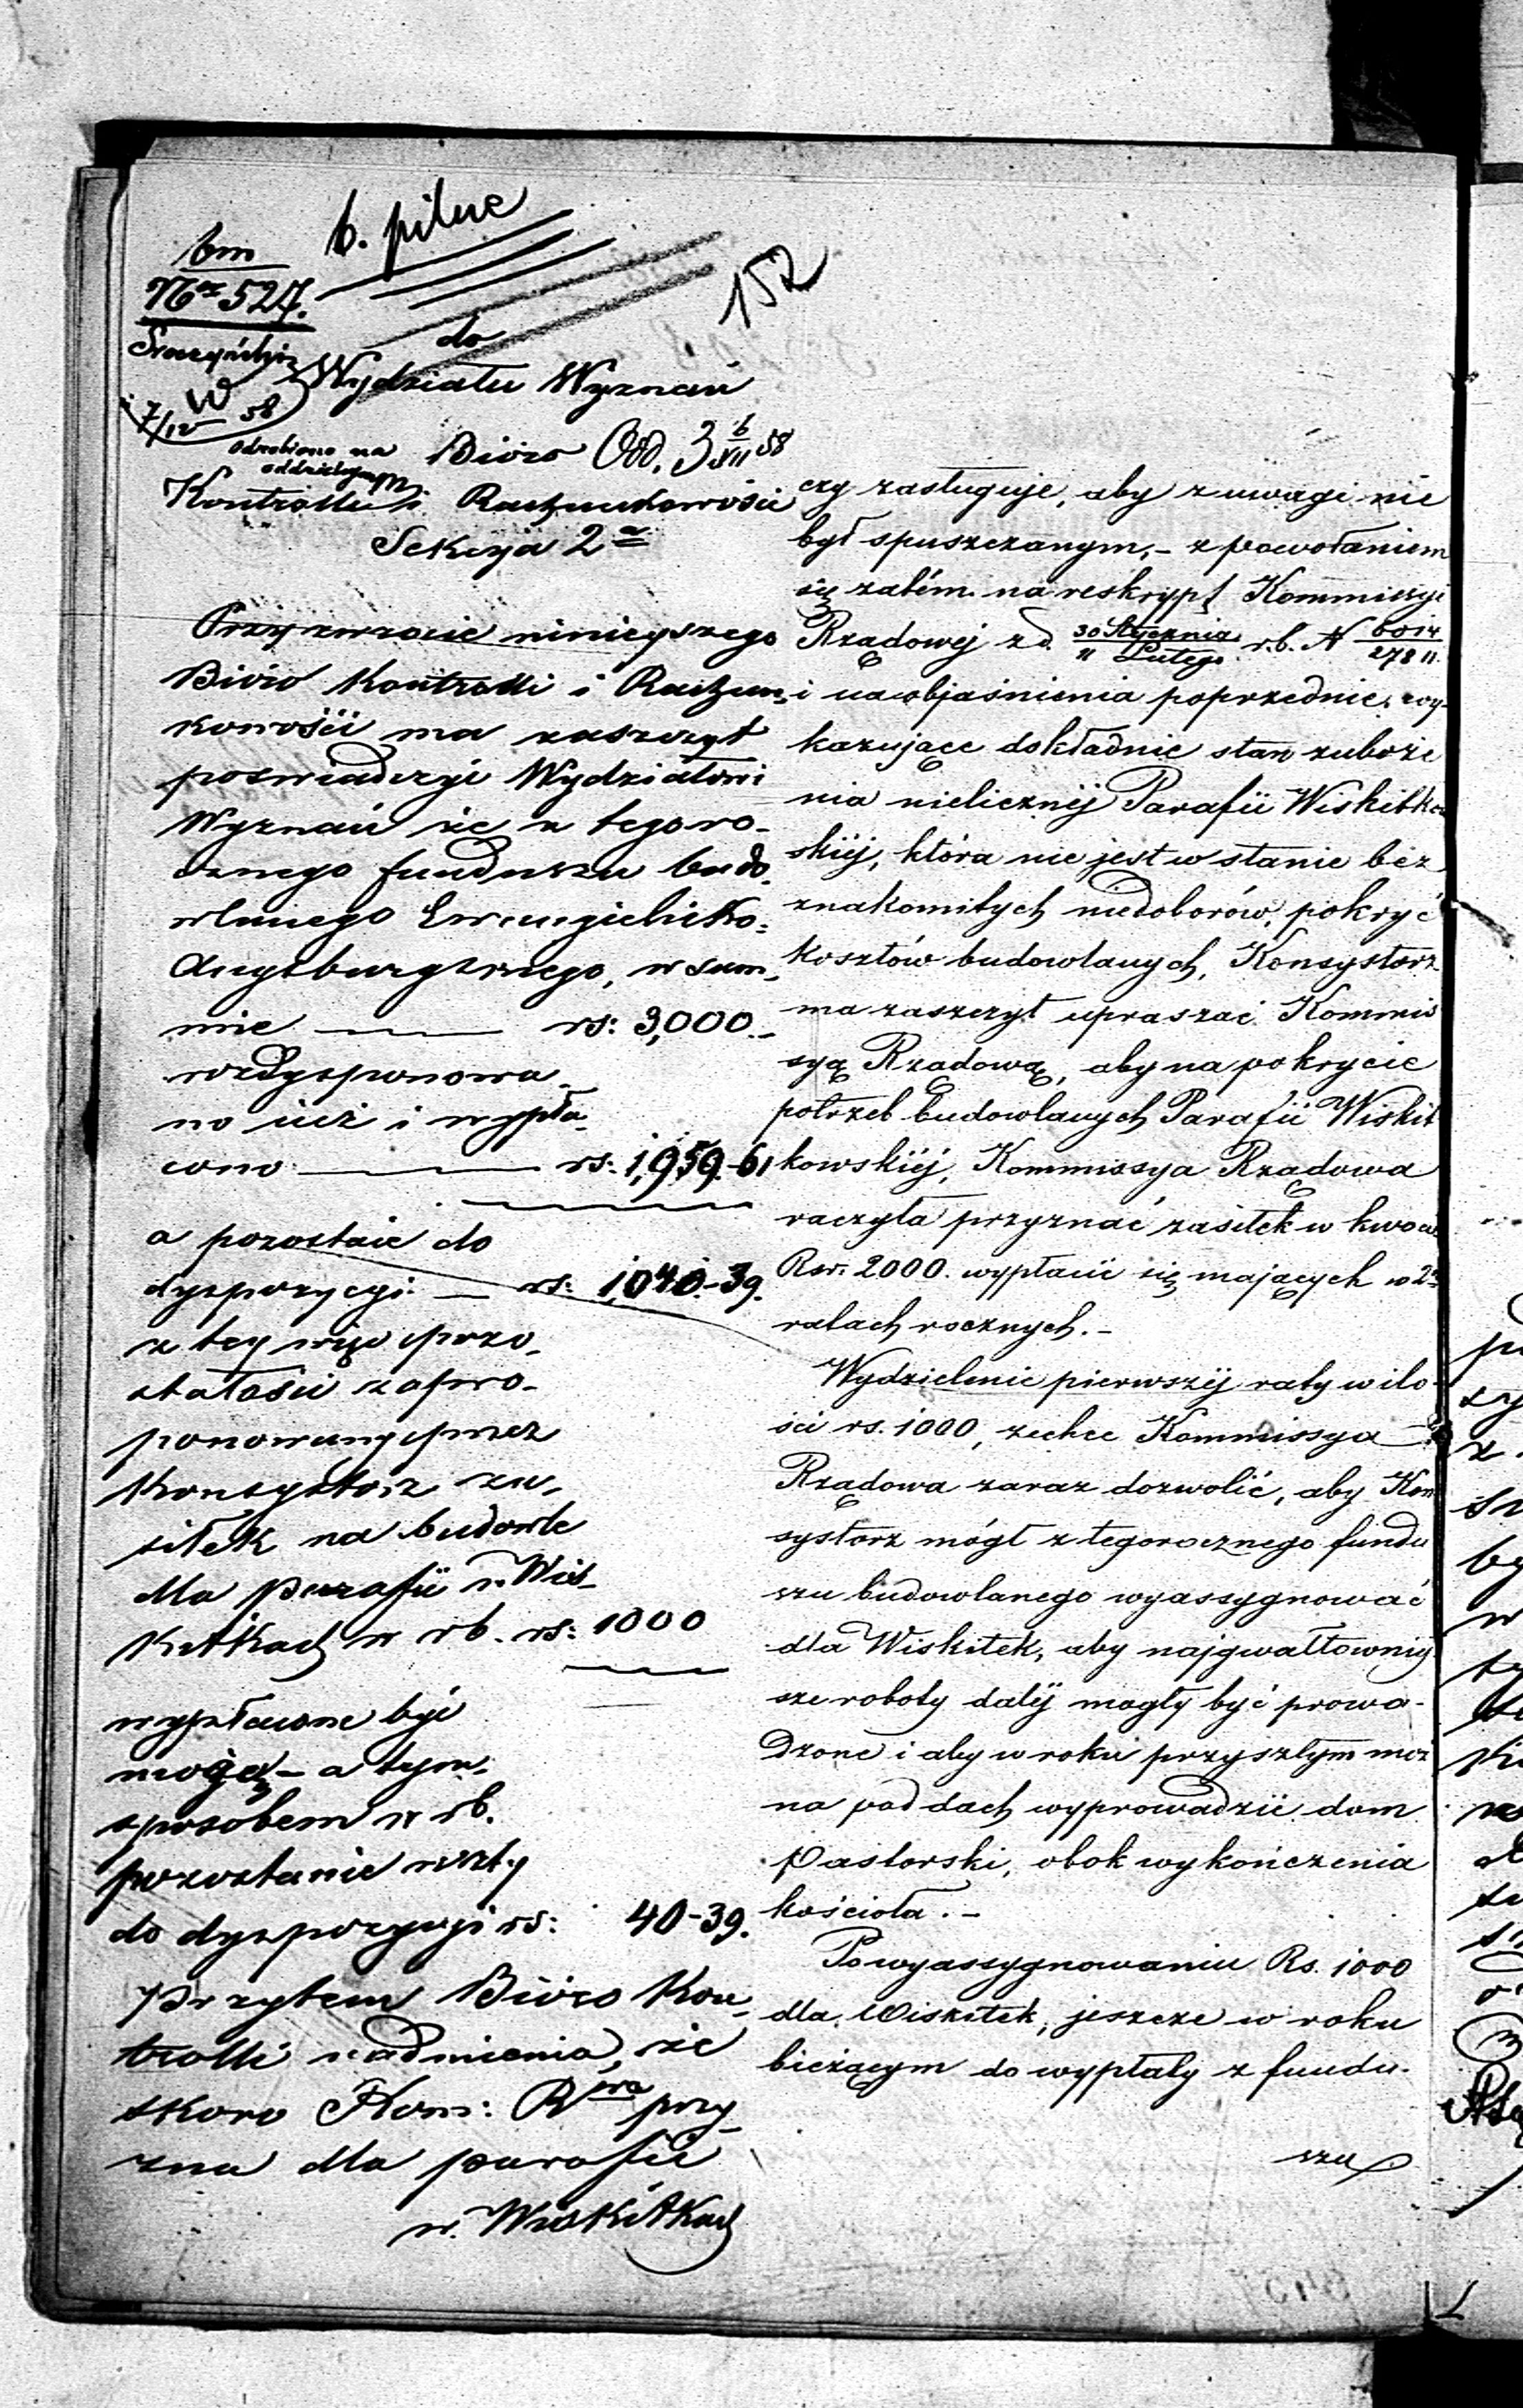 b. pilne
bm
Nr 527.
152
7/IV 58
do
Wydziału Wyznań
Odrobiono na
oddzielnym
Biuro Odd. 3 6/XII 58
Kontrolli i Rachunkowości
Sekcya 2a
Przy zwrocie niniejszego
Biuro Kontrolli i Rachun-
kowości ma zaszczyt
poświadczyć Wydziałowi
Wyznań że z tegoro-
cznego funduszu budo-
wlanego Ewangielicko-
Augsburgskiego, w sum-
mie — rs: 3,000.-
rozdysponowa-
no już i wypła-
cono — rs: 1,959.-61
a pozostaie do
dyspozycyi — rs: 1,040.-39.
z tey więc pozo-
stałości zapro-
ponowany przez
Konsystorz za-
siłek na budowle
dla parafii w Wis-
kitkach w rb. rs: 1000
wypłacone być
mogą - a tym
sposobem w rb.
pozostanie reszty
do dyspozycyi rs: 40-39.
Przytem Biuro Kon-
trolli nadmienia, że
skoro Kom: Rwa przy-
zna dla parafii
w. Wiskitkach
czy zasługuje, aby z uwagi nie
był spuszczanym,- z powołaniem
się zatém na reskrypt Kommissyi
Rządowej z d. 30 Stycznia / 11 Lutego r.b. N 6014 / 278 11.
i na objaśnienia poprzednie, wy-
kazujące dokładnie stan zuboże
nia nielicznéj Parafii Wiskitko
skiéj, która nie jest w stanie bez
znakomitych niedoborów, pokryć
kosztów budowlanych, Konsystorz
ma zaszczyt upraszać Kommis
syą Rządową, aby na pokrycie
potrzeb budowlanych Parafii Wiskit
kowskiéj, Kommissya Rządowa
raczyła przyznać zasiłek w kwocie
Rsr. 2000. wypłacić się mających w 2ch
ratach rocznych.-
Wydzielenie pierwszéj raty w ilo-
ści rs. 1000, zechce Kommissya
Rządowa zaraz dozwolić, aby Kon
systorz mógł z tegorocznego fundu
szu budowlanego wyassygnować
dla Wiskitek, aby najgwałtowniéj
sze roboty daléj mogły być prowa-
dzone i aby w roku przyszłym moż
na pod dach wyprowadzić dom
Pastorski, obok wykończenia
kościoła.-
Po wyassygnowaniu Rs. 1000
dla Wiskitek, jeszcze w roku
bieżącym do wypłaty z fundu-
szu